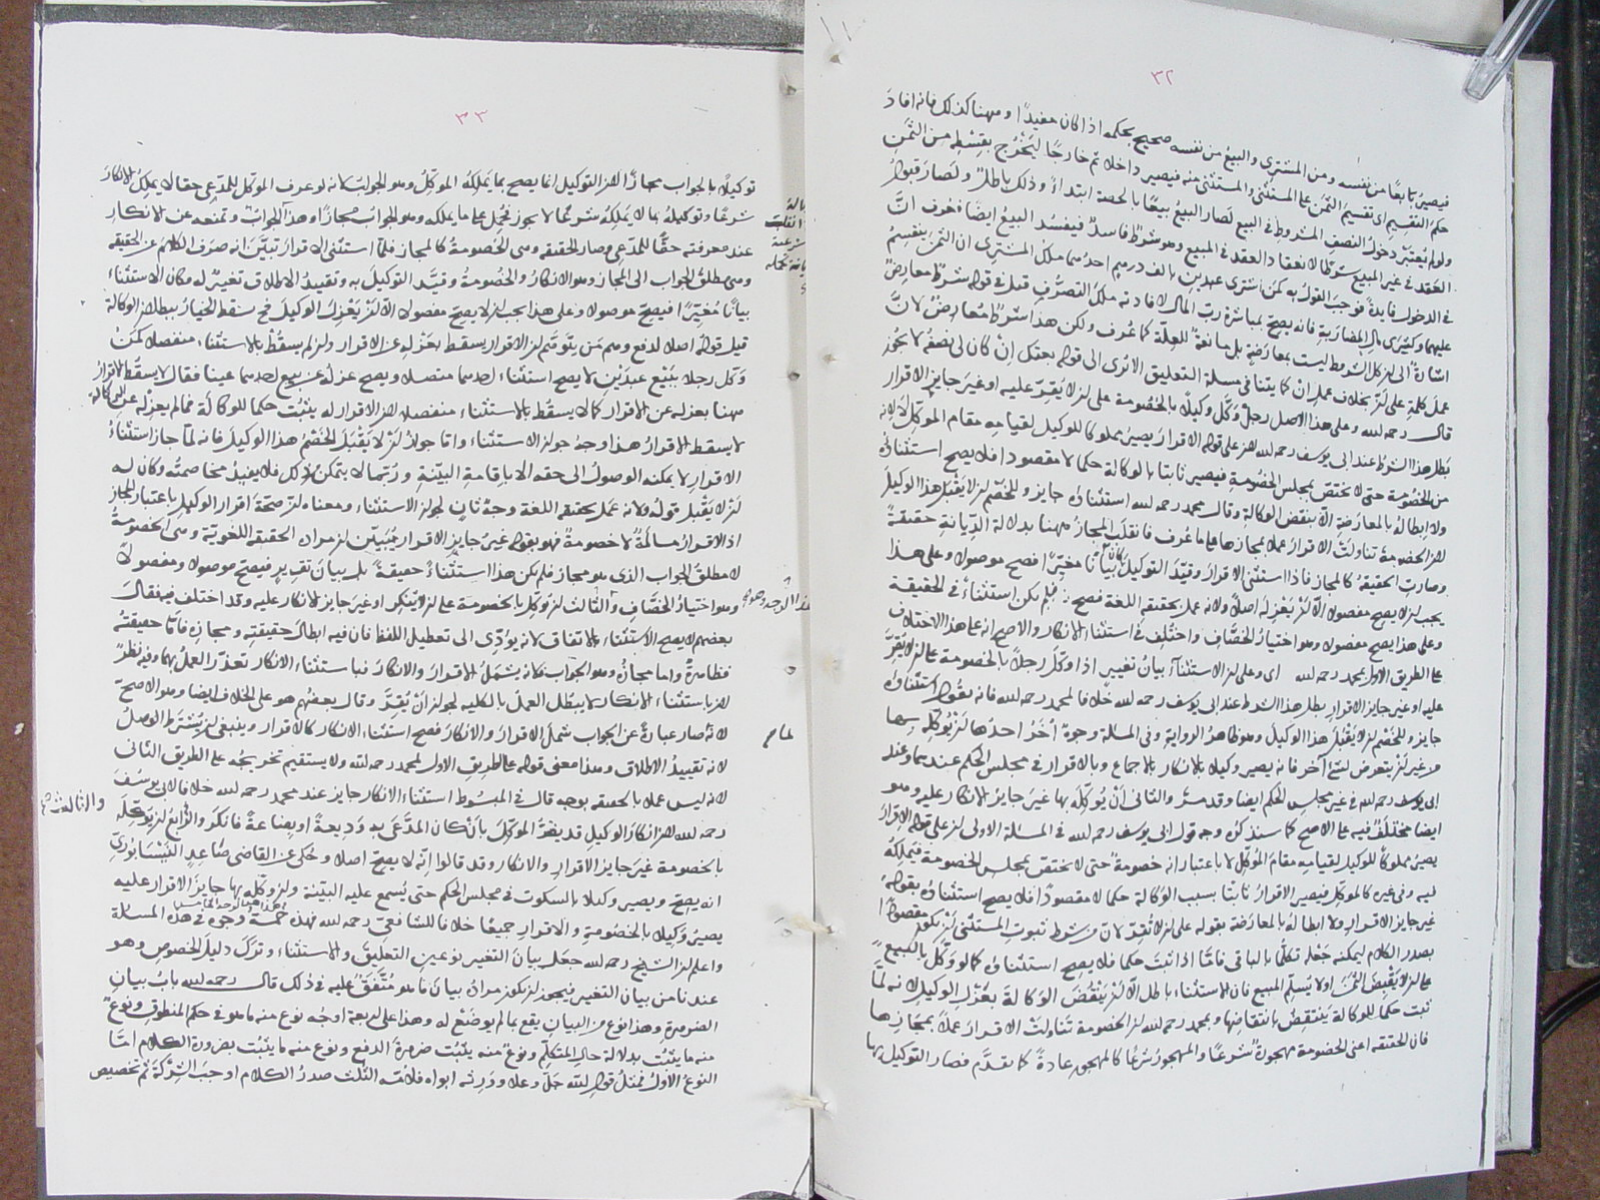 ٣٢
فيصير بايعًا من نفسه ومن المشترى والبيع من نفسه صحيح بحكمه اذا كان مفيدًا وههنا كذلك فانه افاد
حكم التقسيم اى تقسيم الثمن على المستثنى والمستثنى منه فيصير داخلا ثم خارجًا ليخرج بقسطه من الثمن
ولو لم يُعتبر دخولُ النصف المشروط فى البيع لصار البيع بيعًا بالحصة ابتداءً وذلك باطل ولصار قبول
العقد فى غير المبيع شرطًا لانعقاد العقد فى المبيع وهو شرط فاسد فيفسد البيع ايضا فعُرف انّ
فى الدخول فايدةً فوجب القول به كمن اشترى عبدين بالف درهم احدهما ملك المشترى ان الثمن ينقسم
عليهما وكشرى مال المضاربة فانه يصح بمباشرة رب المال لافادته ملك التصرف قبل فى قوله شرط معارض
اشارة الى لن كل الشرط ليست بمعارضة بل مانعة للعلة كما عُرف ولكن هذا شرط معارض لانّ
عمل كلمة على لن بخلاف عمل إنْ كما بيّنا فى مسئلة التعليق الا ترى الى قوله بعتك إنْ كان لى نصفه لا يجوز
قال رحمه لله وعلى هذا الاصل رجلٌ وكّل وكيلاً بالخصومة على لن لا يُقِرّ عليه او غيرَ جايز الاقرار
بطل هذا الشرط عند ابى يوسف رحمه لله لان على قوله الاقرار يصير مملوكا للوكيل لقيامه مقام الموكل لا لانه
من الخصومة حتى لا يختص بمجلس الخصومة فيصير ثابتا بالوكالة حكما لا مقصودا فلا يصح استثناؤه
ولا ابطاله بالمعارضة الّا بنقض الوكالة وقال محمد رحمه لله استثناؤه جايز وللخصم لن لا يقبل هذا الوكيل
لان الخصومة تناولت الاقرار عملا بمجازها على ما عُرف فانقلب المجاز ههنا بدلالة الدّيانة حقيقةً
وصارت الحقيقة كالمجاز فاذا استثنى الاقرار وقيّد التوكيل كان بيانًا مغيّرًا فصح موصولا وعلى هذا
يجب لن لا يصح مفصولا الّا لن يعزله اصلا ولانه عمل بحقيقة اللغة فصح فلم يكن استثناءً فى الحقيقة
وعلى هذا يصح مفصولا وهو اختيار الخصّاف واختُلف فى استثناء الانكار والاصح انه على هذا الاختلاف
على الطريق الاول لمحمد رحمه لله اى وعلى لن الاستثناء بيانُ تغيير اذا وكّل رجلاً بالخصومة على لن لا يُقِرّ
عليه او غير جايز الاقرار بطل هذا الشرط عند ابى يوسف رحمه لله خلافا لمحمد رحمه لله فانه يقول استثناؤه
جايز وللخصم لن لا يقبل هذا الوكيل وهو ظاهر الرواية وفى المسئلة وجوهٌ أخَرُ احدها لن يُوكّله بها
ولا غير لن يتعرض لشئ آخر فانه يصير وكيلا بالانكار بالاجماع وبالاقرار فى مجلس الحكم عندهما وعند
ابى يوسف رحمه لله فى غير مجلس الحكم ايضا وقد مرّ والثانى أنْ يُوكّله بها غيرَ جايز الانكار عليه وهو
ايضا مختلف فيه على الاصح كما سنذكره وجه قول ابى يوسف رحمه لله فى المسئلة الاولى لن على قوله الاقرار
يصير مملوكًا للوكيل لقيامه مقام الموكل لا باعتبار انه خصومةٌ حتى لا يختص بمجلس الخصومة فيملكه
فيه وفى غيره كالموكل فيصير الاقرار ثابتا بسبب الوكالة حكما لا مقصودا فلا يصح استثناؤه بقوله
غير جايز الاقرار ولا ابطاله بالمعارضة بقوله على لن لا تُقِرّ لانّ من شرط ثبوت المستثنى لن يكون مقصودًا
بصدر الكلام ليمكنه جعْله تكلمًا بالباقى فامّا اذا ثبت حكما فلا يصح استثناؤه كما لو وكّل بالبيع
على لن لا يقبضَ الثمن او لا يُسلّم المبيع فان الاستثناء باطل الّا لن ينقُضَ الوكالة بعزل الوكيل لانه لمّا
ثبت حكما للوكالة ينتقض بانتقاضها ولمحمد رحمه لله لن الخصومة تناولت الاقرار عملاً بمجازها
فان الحقيقة اعنى الخصومة مهجورةٌ شرعًا والمهجور شرعًا كالمهجور عادةً كما تقدّم فصار التوكيل بها
٣٣
توكيلًا بالجواب مجازًا لان التوكيل انما يصح بما يملكه الموكّل وهو الجواب لانه لو عرف الموكّل للمدّعى حقا لا يملك الانكار
شرعًا وتوكيله بما لا يملكه شرعًا لا يجوز فحُمل على ما يملكه وهو الجواب مجازًا وهذا الجواب وتمنعه عن الانكار
عند معرفته حقًّا للمدّعى وصار الحقيقه وهى الخصومة كالمجاز فلمّا استثنى الاقرار تبيّن انه صرف الكلام عن الحقيقه
وهى مطلق الجواب الى المجاز وهو الانكار والخصومة وقيّد التوكيل به وتقييد الاطلاق تغييرٌ له فكان الاستثناء
بيانًا مُغيّرًا فيصح موصولا وعلى هذا يجب لن لا يصح مفصولا الّا لن يعزل الوكيل فح سقط الخيار ببطلان الوكالة
قيل قوله اصلا لدفع وهم من يتوهم لن الاقرار يسقط بعزله عن الاقرار ولن لم يسقط بالاستثناء منفصلا كمنْ
وكّل رجلا ببيع عبدَيْن لا يصح استثناء احدهما متصلا ويصح عزله عن بيع احدهما عينا فقال لا يسقط الاقرارُ
ههنا بعزله عن الاقرار كما لا يسقط بالاستثناء منفصلا لان الاقرار له يثبت حكما للوكالة فما لم يعزله عن الوكالة
لا يسقط الاقرار هذا وجهُ جواز الاستثناء وامّا جواز لن لا يقبل الخصم هذا الوكيل فانه لمّا جاز استثناءُ
الاقرار لا يمكنه الوصول الى حقه الا باقامة البيّنة وربّما لا يتمكن لذلك فلا يفيد مخاصمته وكان له
لن لا يقبل قوله ولانه عمل بحقيقة اللغة وجهٌ ثانٍ لجواز الاستثناء ومعناه لن صحّة اقرار الوكيل باعتبار المجاز
اذ الاقرار مسالمةٌ لا خصومةٌ فهو بقوله غير جايز الاقرار يُبيّن لن مراده الحقيقة اللغوية وهى الخصومةُ
لا مطلق الجواب الذى هو مجاز فلم يكن هذا استثناءً حقيقةً بل بيان تقرير فيصح موصولا ومفصولاً
وهو اختيار الخصّاف والثالث لن يُوكّل بالخصومة على لن لا يُنكر او غير جايز الانكار عليه وقد اختلف فيه فقال
بعضهم لا يصح الاستثناء بالاتفاق لانه يؤدّى الى تعطيل اللفظ فان فيه ابطال حقيقته ومجازه فامّا حقيقته
فظاهرةٌ واما مجازه وهو الجواب فلانه يشمل الاقرار والانكار فباستثناء الانكار تعذّر العمل بهما وفيه نظرٌ
لان باستثناء الانكار لا يبطل العمل بالكليه لجواز أنْ يُقِرّ وقال بعضهم هو على الخلاف ايضا وهو الاصح
لانه صار عبارةً عن الجواب شمل الاقرار والانكار فصح استثناء الانكار كالاقرار وينبغى لن يُشترط الوصل
لانه تقييد الاطلاق وهذا معنى قوله على الطريق الاول لمحمد رحمه لله ولا يستقيم تخريجه على الطريق الثانى
لانه ليس عملا بالحقيقه بوجه قال فى المبسوط استثناء الانكار جايز عند محمد رحمه لله خلافا لابى يوسف
رحمه لله لان انكار الوكيل قد يضرّ الموكل بأنْ كان المدّعَى به وديعةً او بضاعةً فانكر والرابع لن يوكّله
بالخصومة غير جايز الاقرار والانكار وقد قالوا إنّه لا يصح اصلا وحُكى عن القاضى صاعد النيسابورى
انه يصح ويصير وكيلا بالسكوت فى مجلس الحكم حتى يُسمع عليه البيّنة ولن وكّله بها جايز الاقرار عليه
يصير وكيلا بالخصومة والاقرار جميعًا خلافا للشافعى رحمه لله فهذه خمسة وجوه فى هذه المسئلة
واعلم لن الشيخ رحمه لله جعل بيان التغير نوعين التعليق والاستثناء وترك دليل الخصوص وهو
عندنا من بيان التغيير فيجوز لن يكون مراده بيان ما هو مُتّفقٌ عليه فى ذلك قال رحمه لله بابُ بيان
الضرورة وهذا نوع من البيان يقع بما لم يوضع له وهذا على اربعة اوجه نوع منه ما هو فى حكم المنطوق ونوع
منه ما يثبت بدلالة حال المتكلّم ونوع منه يثبت ضرورة الدفع ونوع منه ما يثبت بضرورة الكلام امّا
النوع الاول فمثلُ قول لله جلّ وعلا وورثه ابواه فلامّه الثلث صدر الكلام اوجب الشركة ثم تخصيص